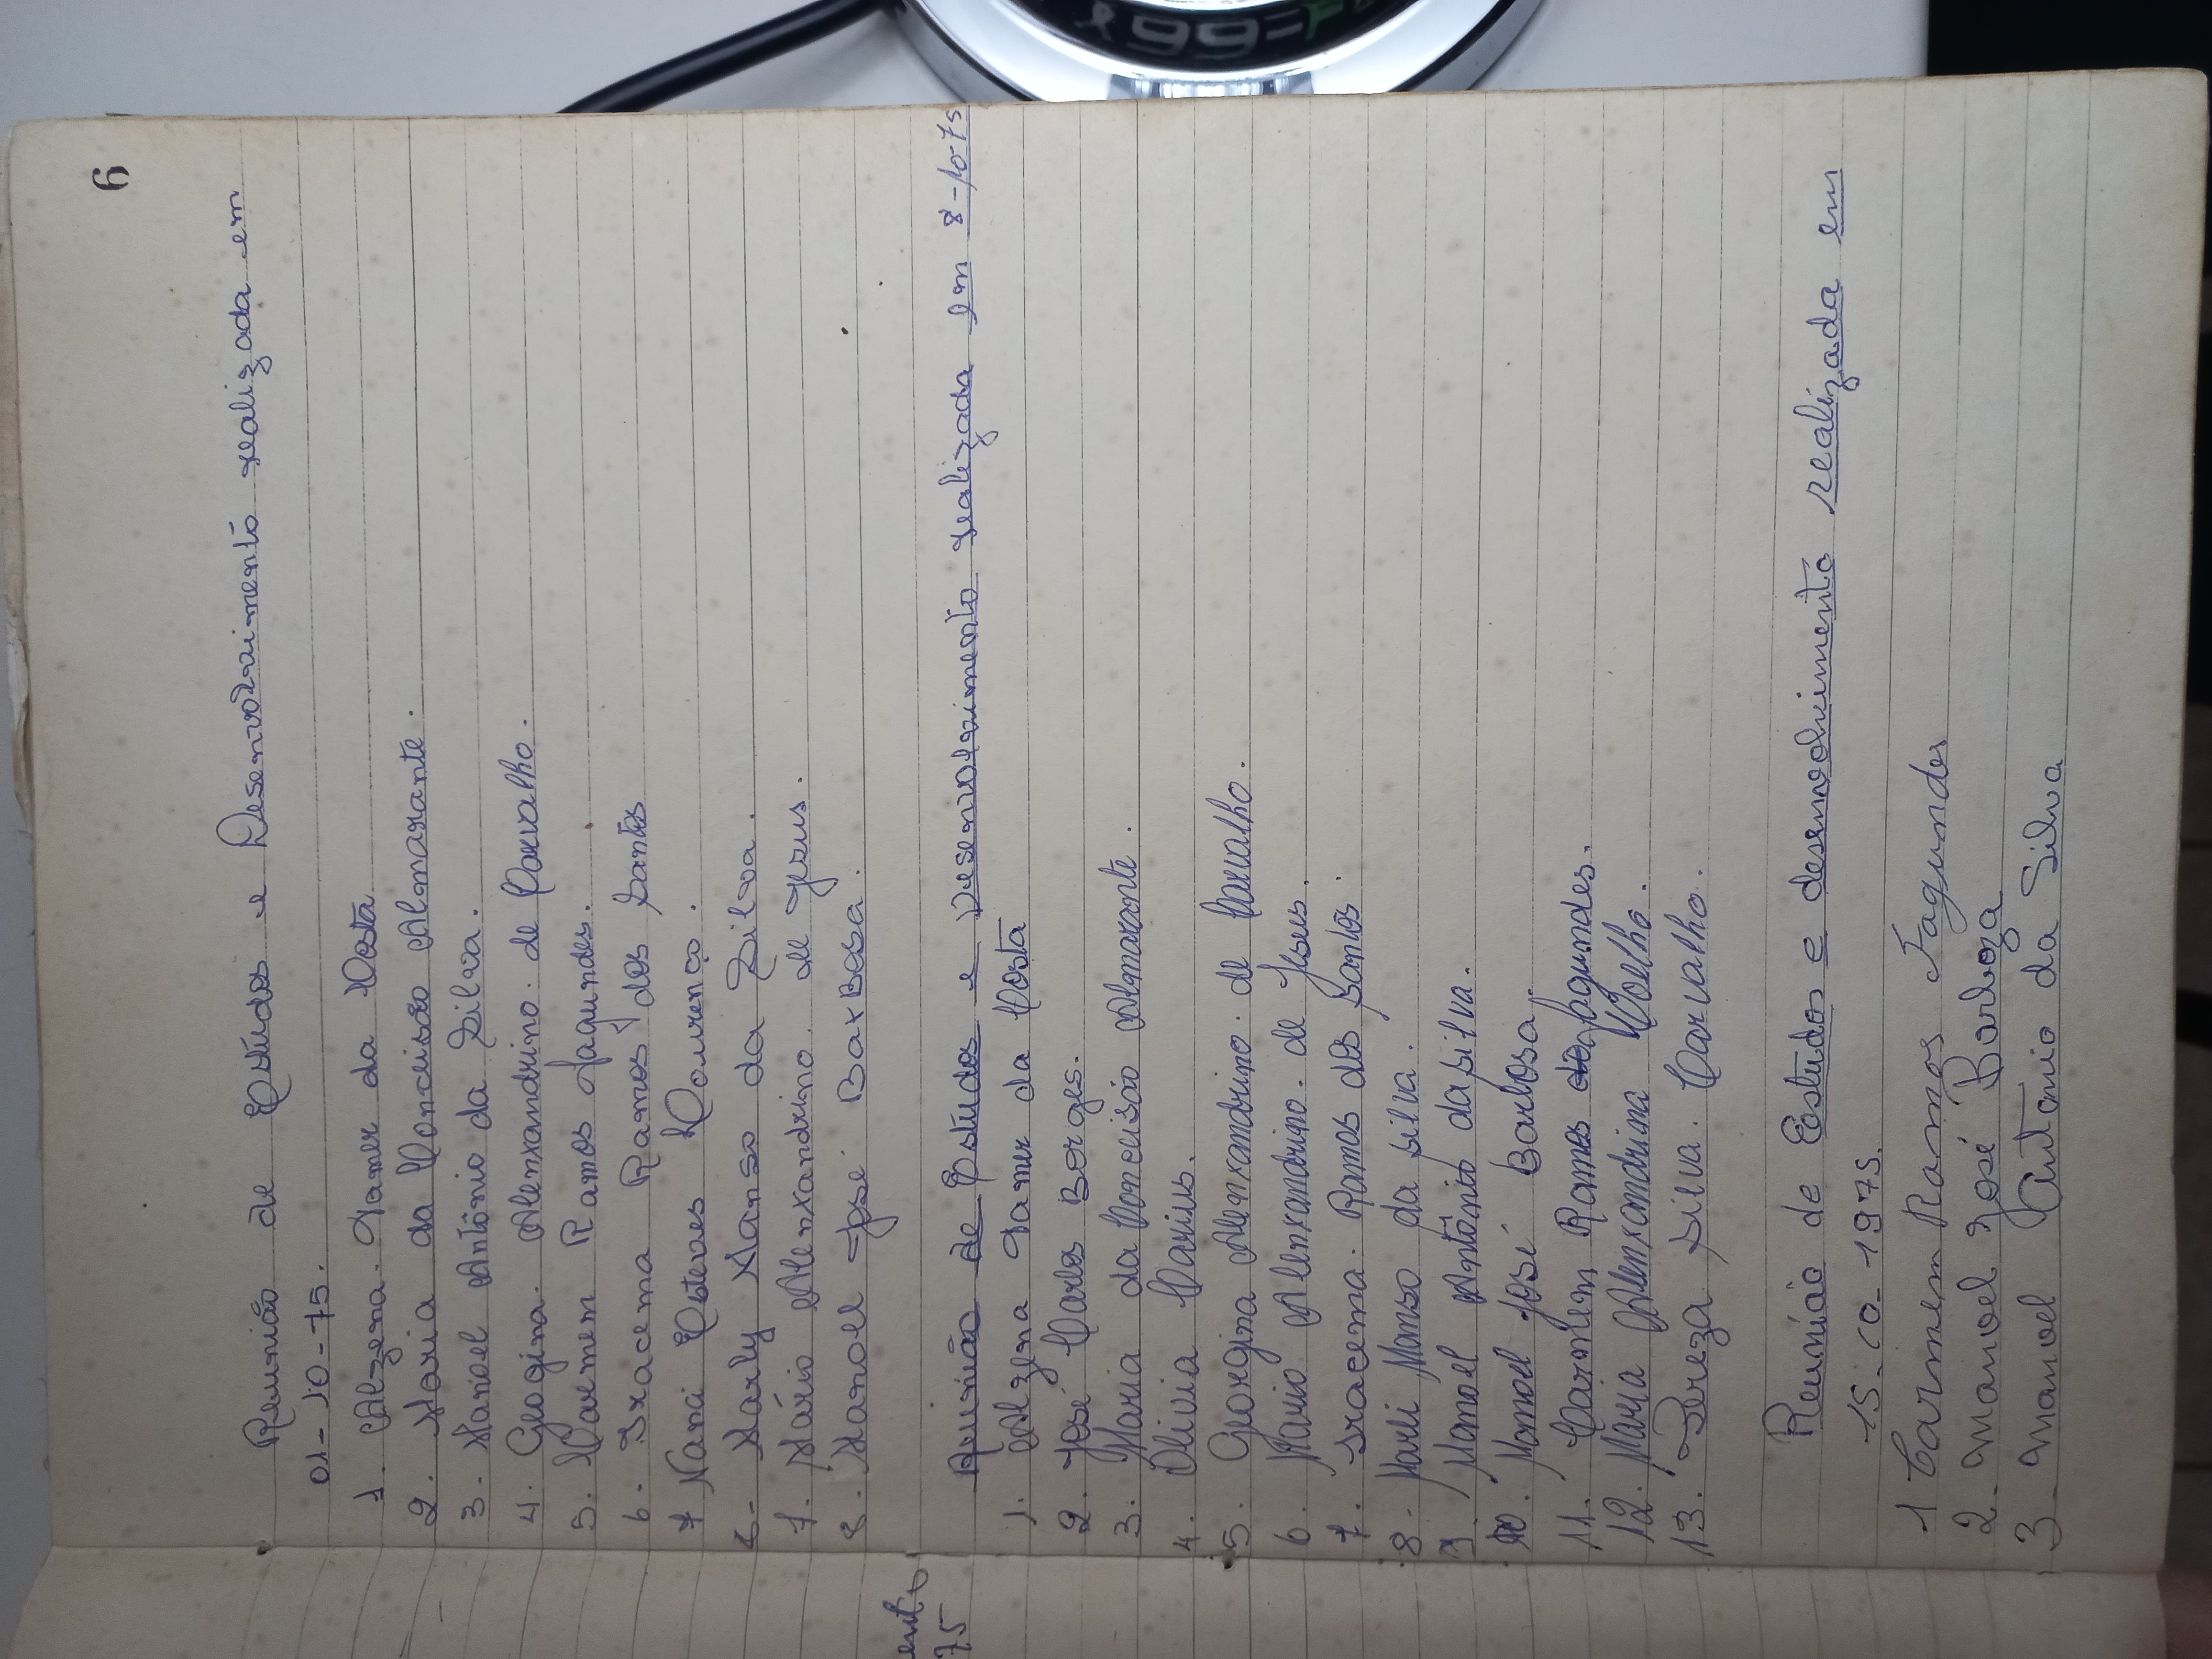 6
Reunião de Estudos e Desenvolvimento realizada em
01-10-75.
1. Alzena. Tamer da Costa
2. Maria da Conceisão Almarante.
3. Manoel Antônio da Silva.
4. Geogina. Alenxandrino. de Carvalho.
5. Carmem Ramos fagundes.
6. Iracema Ramos dos Santos
7 Naraci Esteves Lourenço.
6- Marly Manso da Silva.
7. Mário Alenxandrino. de Jesus.
8. Manoel José BarBosa.
Reunião de Estudos e Desenvolvimento realizada em 8-10-75
1. Alzena Tamer da Costa
2. José Carlos Borges.
3. Maria da Conceisão Almarante.
4. Olivia Carius.
5. Georgina Alenxandrino. de Carvalho.
6. Mario Alenxandrino. de Jesus.
7. Iracema. Ramos dos Santos.
8. Marli Manso da silva.
9. Manoel Antônio da silva.
10. Manoel José Barbosa.
11. Carmem Ramos fagundes.
12. Maria Alenxandrina Coelho.
13. Tereza silva. Carvalho.
Reunião de Estudos e desenvolvimento realizada em
15-10-1975.
1 Carmem Ramos Fagundes
2. manoel José Barboza
3 manoel Antonio da Silva
ento
75